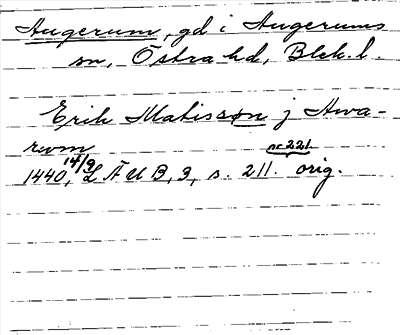 Augerum, gd i Augerums
sn, Östra hd, Blek. l.
Erik Matisson j Awa-
rwm
nr 221.
1440 14/9, L Ä U B, 3, s. 211. orig.